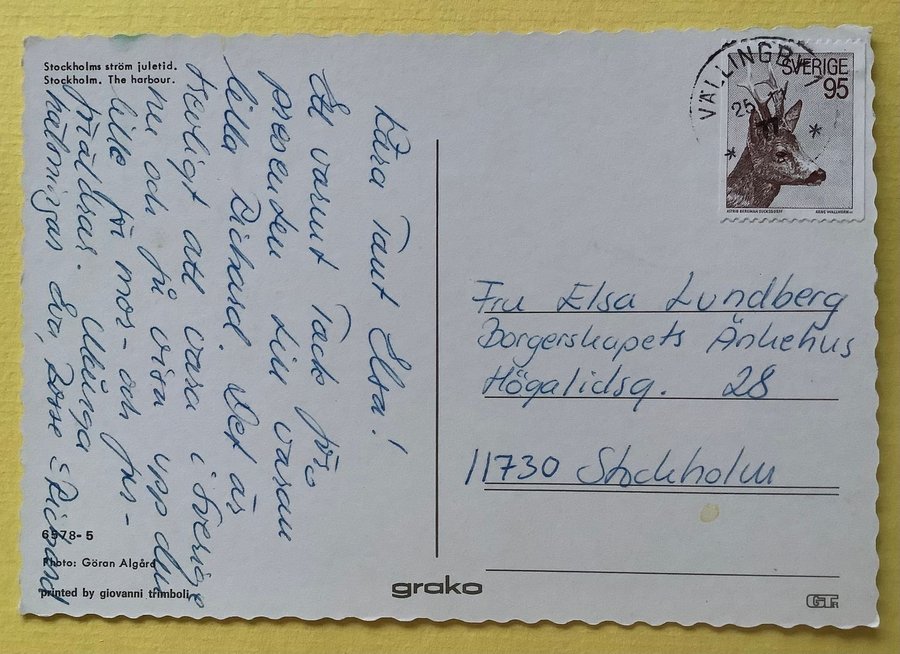 Stockholms ström juletid.
Stockholm. The harbour.
Kära Tant Elsa!
Ett varmt Tack för
presenten till våran
lilla Richard. Det är
trevligt att vara i Sverige
nu och få visa upp den
lille för mor- och far-
föräldrar. Många
hälsningar Eva, Rosse & Richard
6978-5
Photo: Göran Algård
printed by giovanni trimboli
grako
GTR
VÄLLINGBY 1
25 11
77
SVERIGE
95
ASTRID BERGMAN SUCKSDORFF ARNE WALLHORN SC
Fru Elsa Lundberg
Borgerskapets Änkehus
Högalidsg. 28
11730 Stockholm